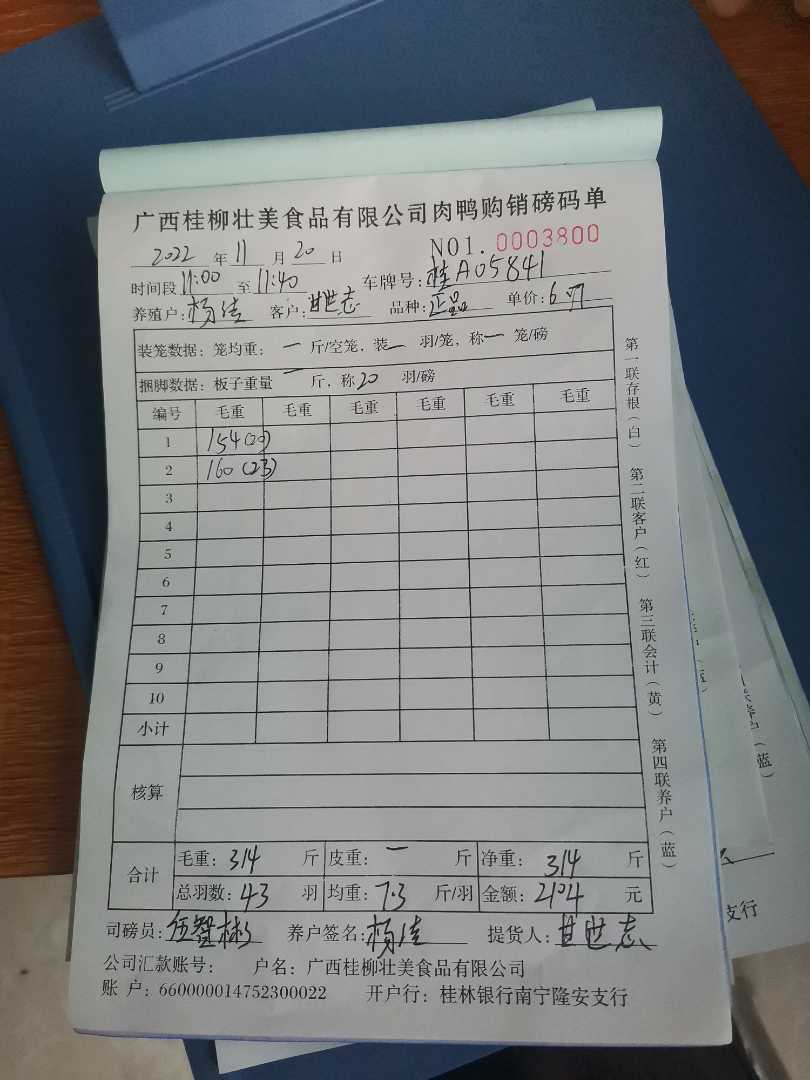 广西桂柳壮美食品有限公司肉鸭购销磅码单
2022 年 11 月 20 日 NO1. 0003800
时间段 11:00 至 11:40 车牌号: 桂A05841
养殖户: 杨佳 客户: 甘世志 品种: 正品 单价: 6.7
装笼数据: 笼均重: 一 斤/空笼, 装 一 羽/笼, 称 一 笼/磅
捆脚数据: 板子重量 一 斤, 称 20 羽/磅
编号 毛重 毛重 毛重 毛重 毛重 毛重
1 154(20)
2 160(23)
3
4
5
6
7
8
9
10
小计
核算
合计 毛重: 314 斤 皮重: 一 斤 净重: 314 斤
总羽数: 43 羽 均重: 7.3 斤/羽 金额: 2104 元
司磅员: 伍智彬 养户签名: 杨佳 提货人: 甘世志
公司汇款账号: 户名: 广西桂柳壮美食品有限公司
账 户: 660000014752300022 开户行: 桂林银行南宁隆安支行
第一联存根(白) 第二联客户(红) 第三联会计(黄) 第四联养户(蓝)
(蓝)
支行